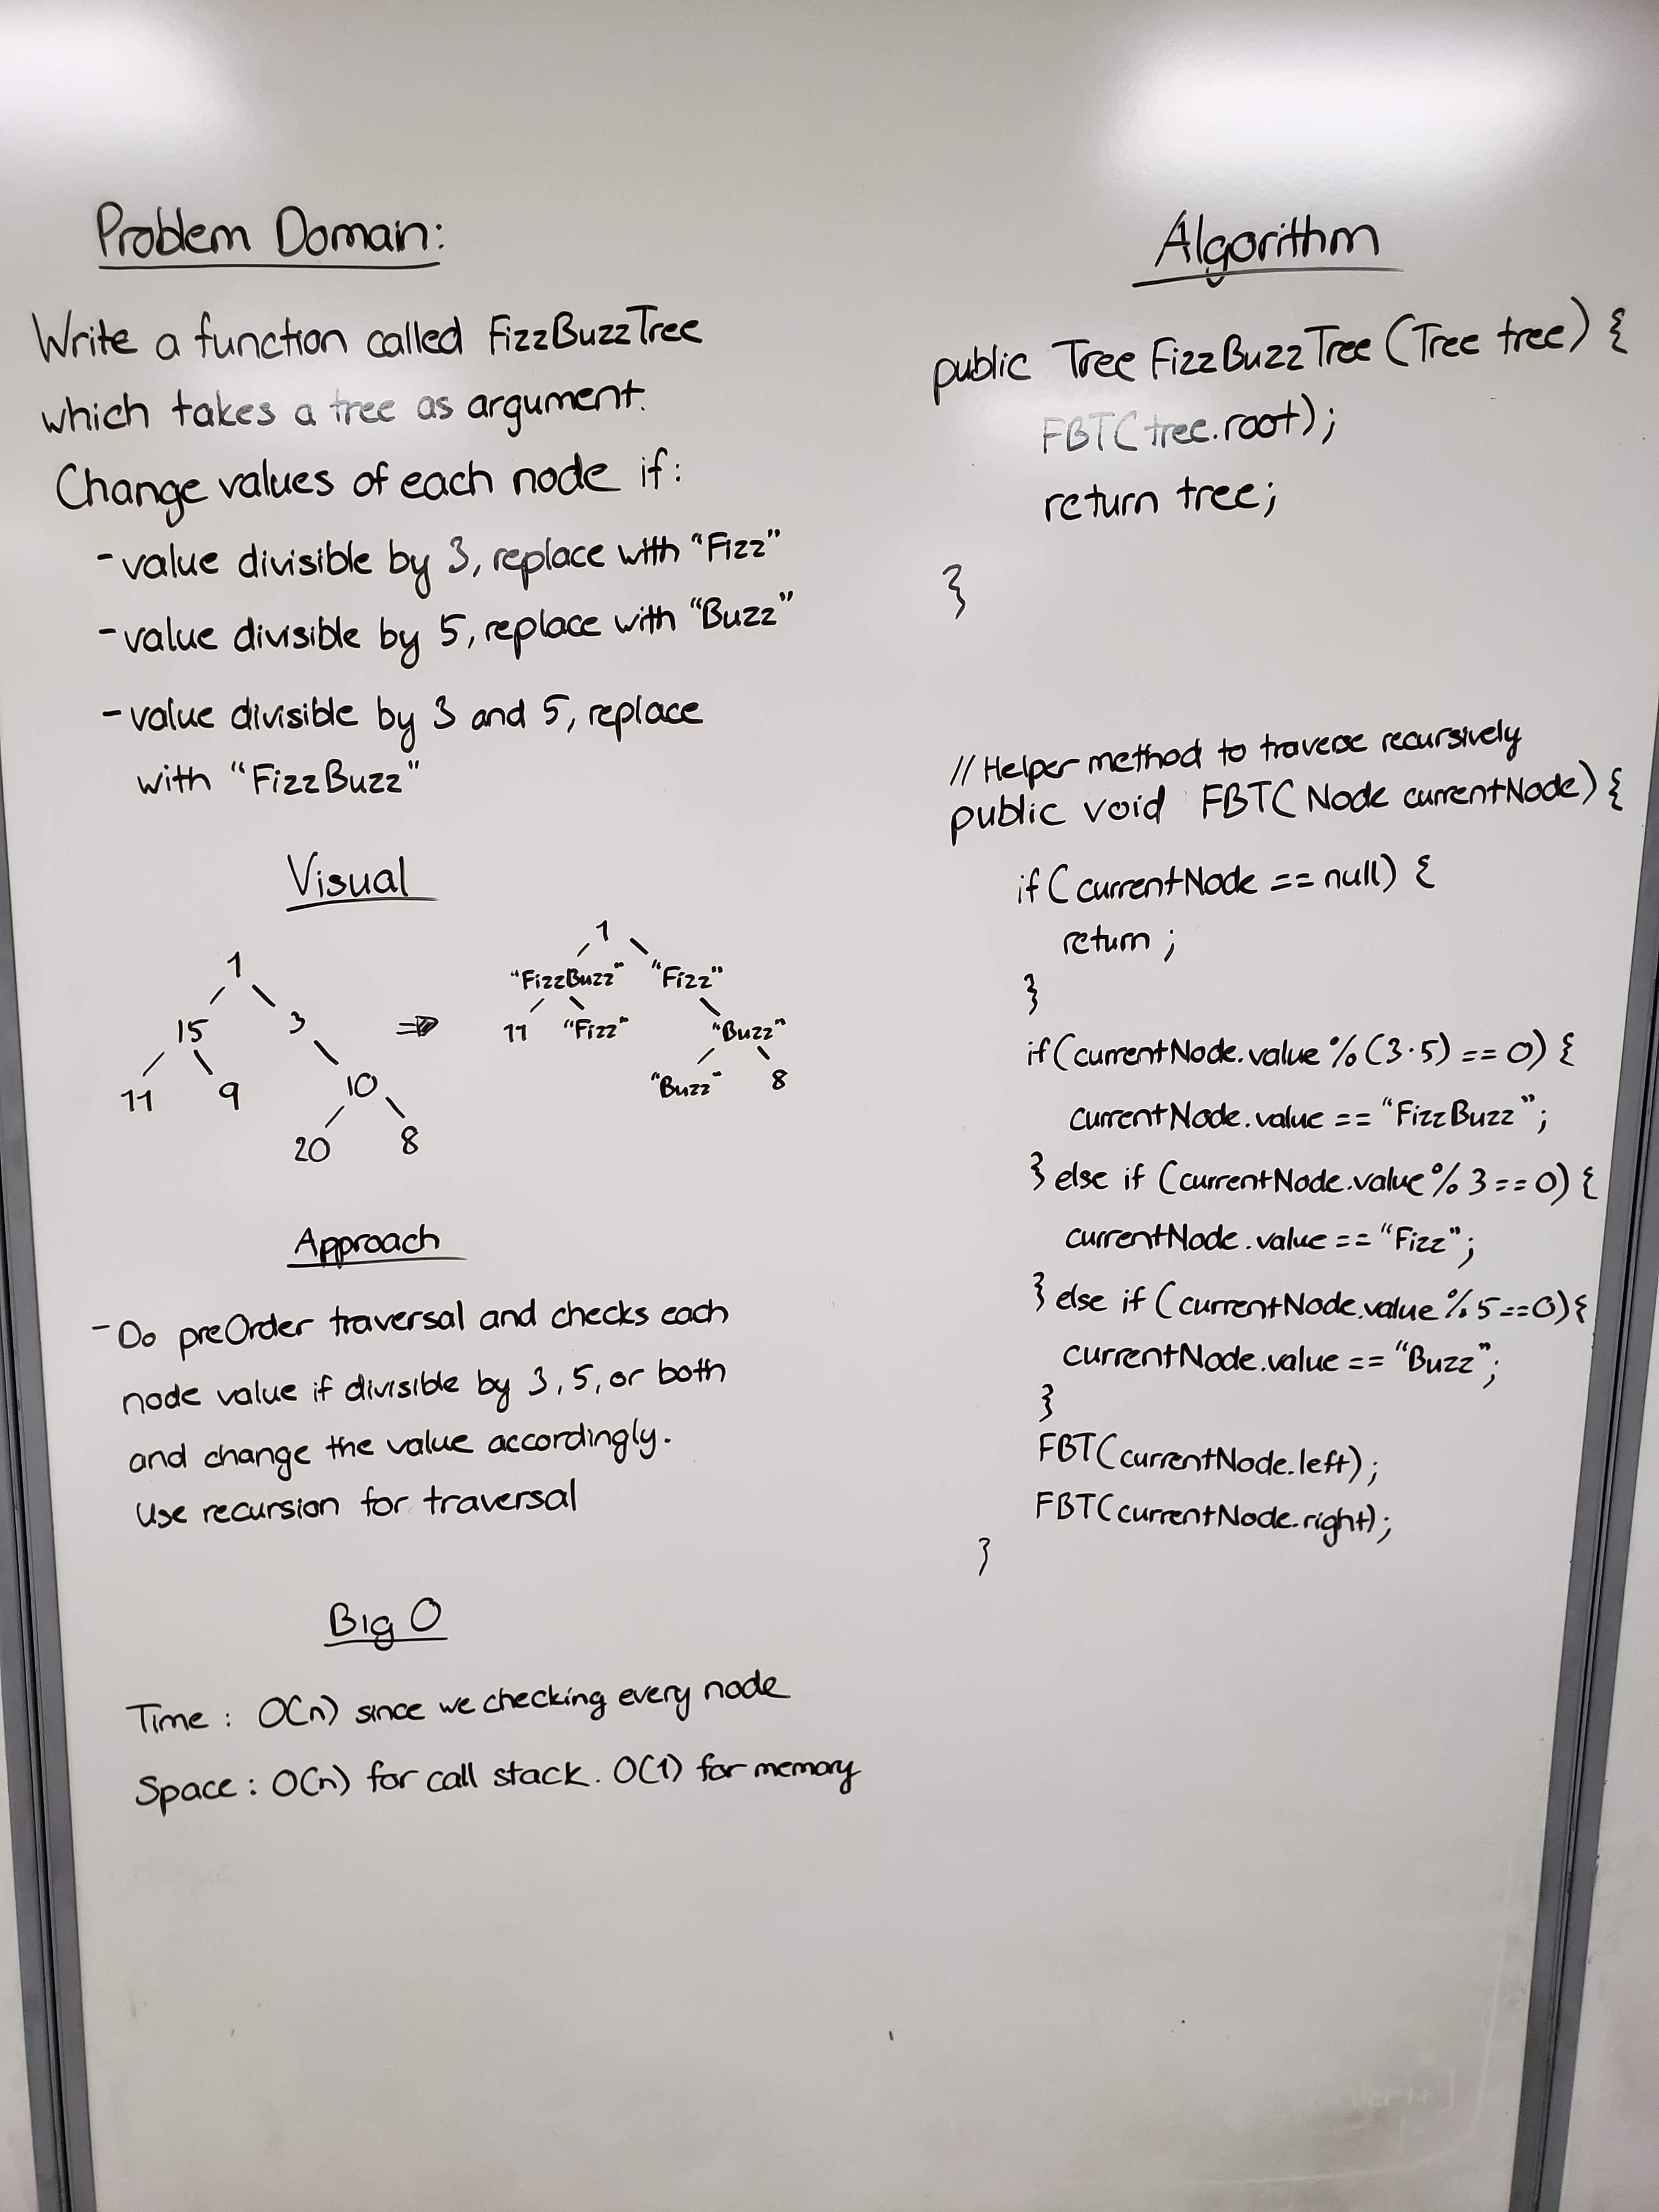 Problem Domain:
Write a function called FizzBuzzTree
which takes a tree as argument.
Change values of each node if:
- value divisible by 3, replace with "Fizz"
- value divisible by 5, replace with "Buzz"
- value divisible by 3 and 5, replace
with "FizzBuzz"
Visual
1
15 3
11 9 10
20 8
⇒
1
"FizzBuzz" "Fizz"
11 "Fizz" "Buzz"
"Buzz" 8
Approach
- Do preOrder traversal and checks each
node value if divisible by 3, 5, or both
and change the value accordingly.
Use recursion for traversal
Big O
Time: O(n) since we checking every node
Space: O(n) for call stack. O(1) for memory
Algorithm
public Tree FizzBuzzTree (Tree tree) {
FBT(tree.root);
return tree;
}
// Helper method to traverse recursively
public void FBT(Node currentNode) {
if (currentNode == null) {
return;
}
if (currentNode.value % (3·5) == 0) {
currentNode.value == "FizzBuzz";
} else if (currentNode.value % 3 == 0) {
currentNode.value == "Fizz";
} else if (currentNode.value % 5 == 0) {
currentNode.value == "Buzz";
}
FBT(currentNode.left);
FBT(currentNode.right);
}